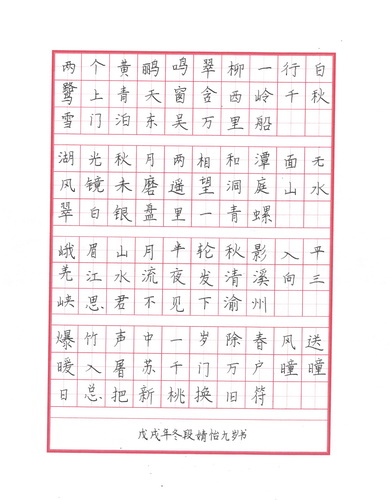 两个黄鹂鸣翠柳一行白
鹭上青天窗含西岭千秋
雪门泊东吴万里船
湖光秋月两相和潭面无
风镜未磨遥望洞庭山水
翠白银盘里一青螺
峨眉山月半轮秋影入平
羌江水流夜发清溪向三
峡思君不见下渝州
爆竹声中一岁除春风送
暖入屠苏千门万户瞳瞳
日总把新桃换旧符
戊戌年冬段婧怡九岁书